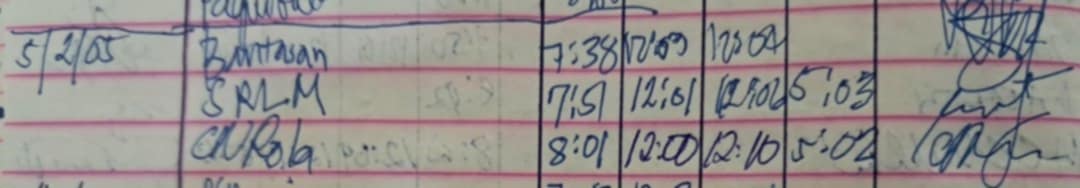 5/2/05 Bantasan 7:38 12:03 12:04
SRLM 7:51 12:01 12:02 5:03
CNRola 8:01 12:00 12:10 5:02